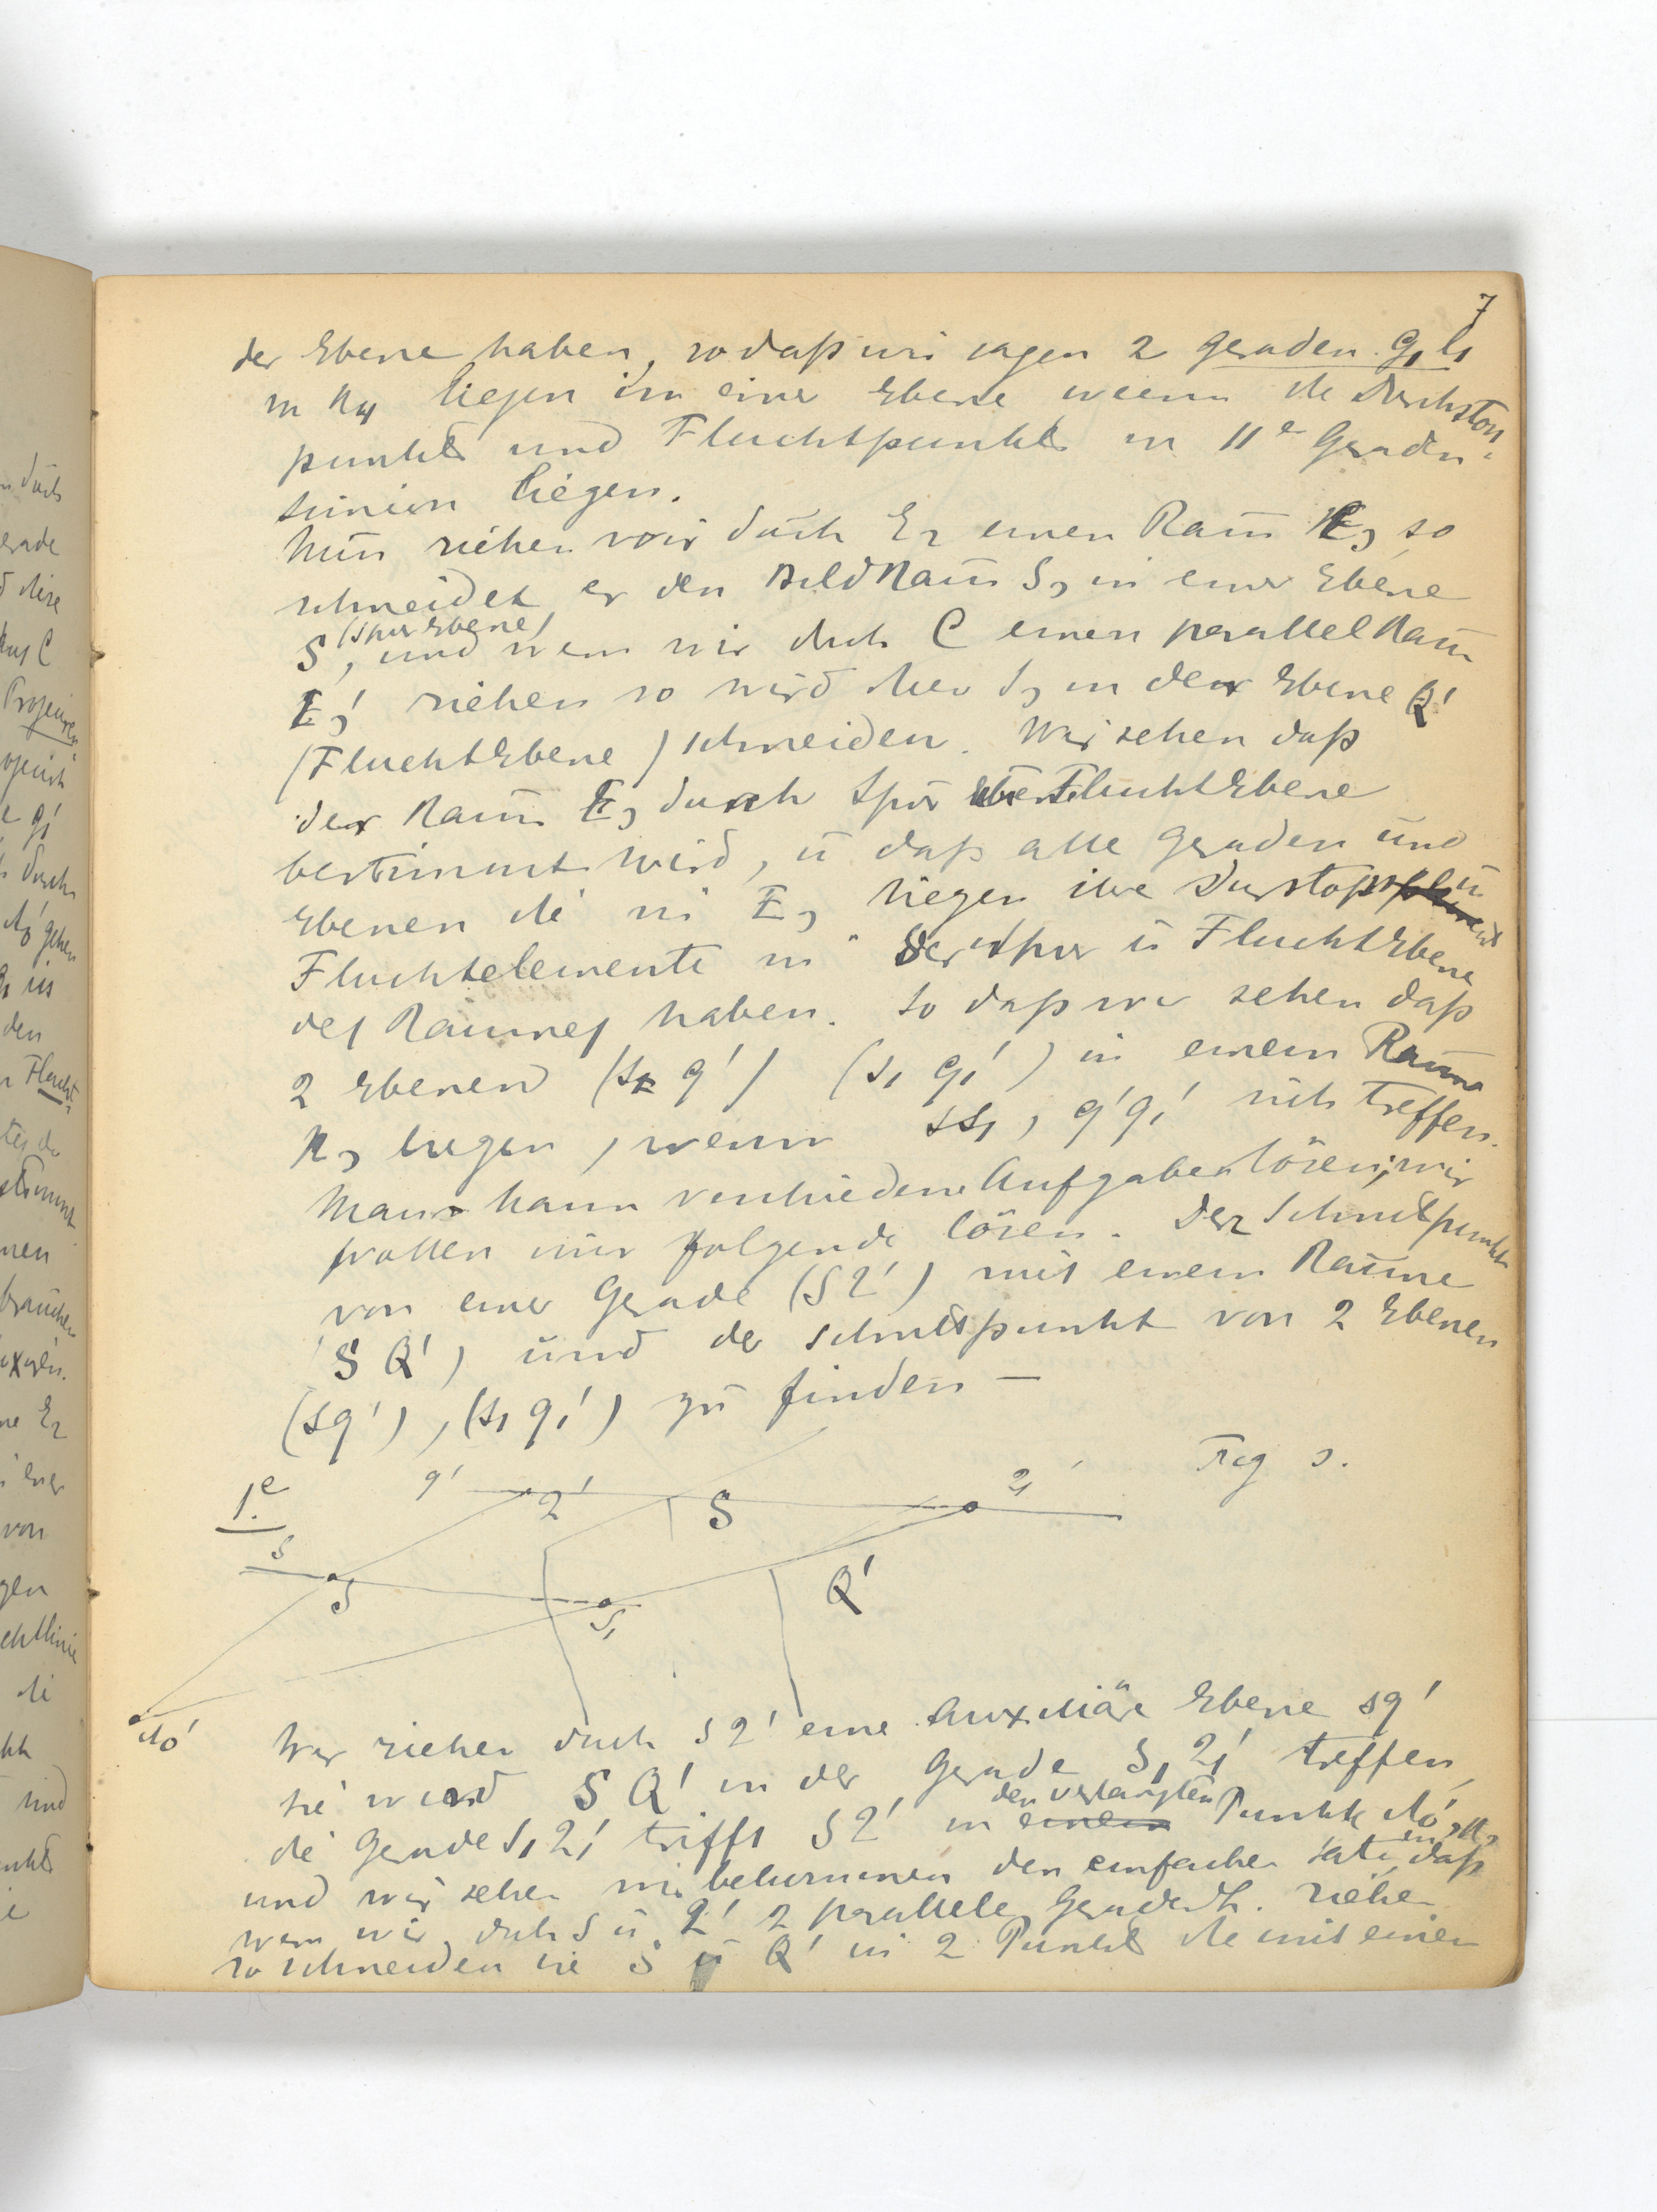 7
der Ebene haben, so daß wir sagen 2 geraden g, l,
in R4 liegen in einer Ebene wenn die Durchstoß
punkte und Fluchtpunkte in 11e Graden
liegen.
Nun ziehen wir durch E2 einen Raum E3 so
schneidet er den Bild Raum S3 in einer Ebene
(Spur Ebene)
S, und wenn wir durch C einen parallel Raum
E3' ziehen so wird dieser S3 in der Ebene Q'
(Flucht Ebene) schneiden. Wir sehen daß
der Raum E3 durch Spur Flucht Ebene
bestimmt wird, ū daß alle geraden und
Ebenen die in E3 liegen ihre Durstoß ū
Fluchtelemente in der Spur ū Flucht Ebene
des Raumes haben. So daß wir sehen daß
2 Ebenen (s q') (s1 q1') in einem Raum
R3 liegen, wenn ss1, q'q1' sich treffen.
Man kann verschiedene Aufgaben lösen, wir
wollen nur folgende lösen. Der Schnittpunkt
von einer Gerade (S 2') mit einem Raume
(S Q') und der Schnittpunkt von 2 Ebenen
(s q'), (s1 q1') zu finden —
Fig 3.
1.e
q' 2' S 21'
s S S1 Q'
Mo'
Wir ziehen durch S 2' eine Auxiliäre Ebene s q'
sie wird S Q' in der Gerade S1 21' treffen
den verlangten
die Gerade S1 21' trifft S 2' in einem Punkte Mo'
und wir sehen wir bekommen den einfachen Satz daß
wenn wir durch S ū 2' 2 parallele Geraden ziehen
so schneiden sie S ū Q' in 2 Punkte die mit einer